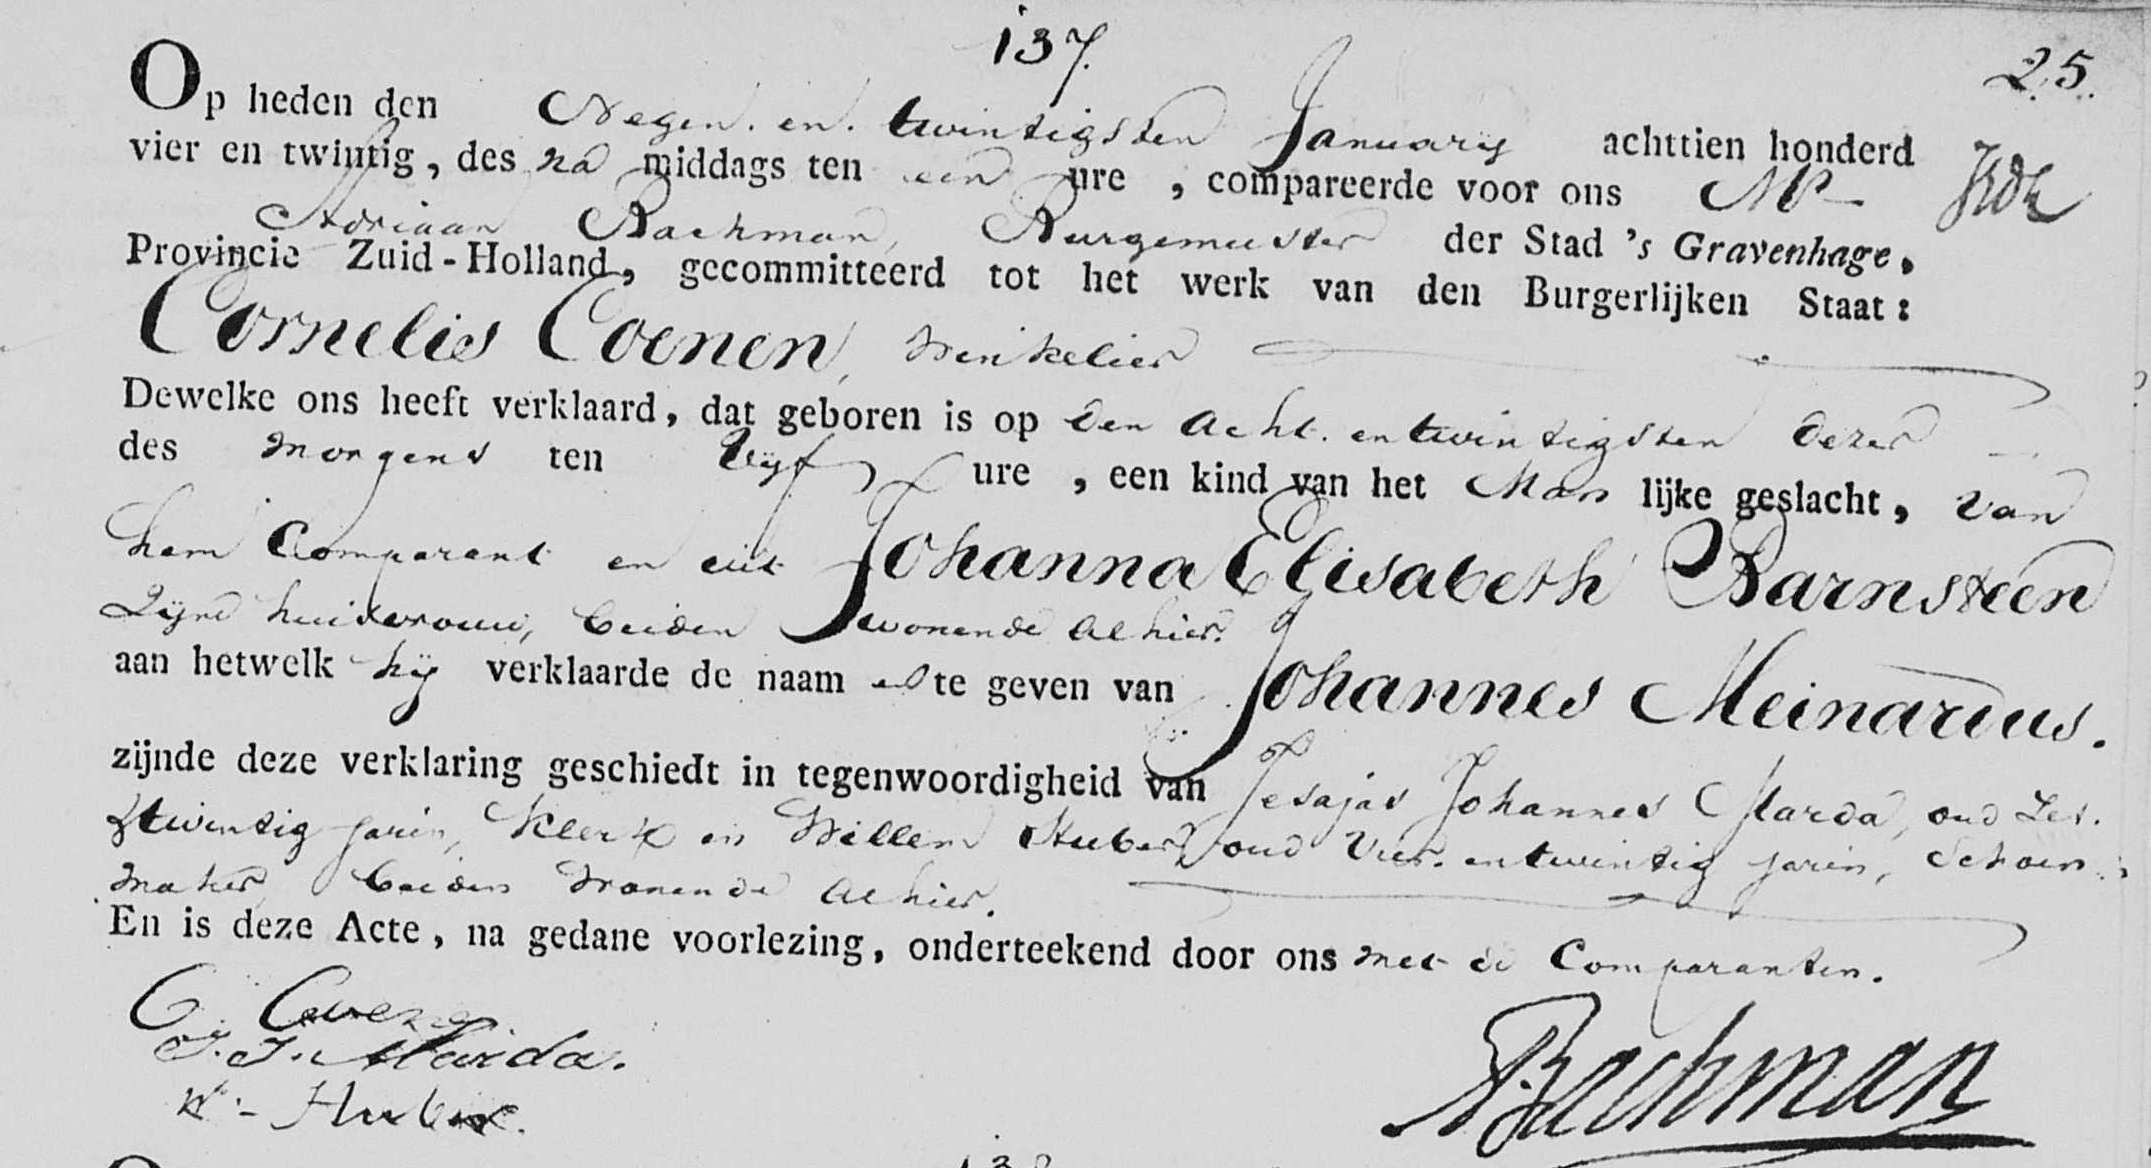 137.
25.
Op heden den Negen. en. twintigsten January achttien honderd
vier en twintig, des na middags ten een ure , compareerde voor ons Mr
Adriaan Bachman, Burgemeester der Stad 's Gravenhage,
Provincie Zuid-Holland, gecommitteerd tot het werk van den Burgerlijken Staat:
Cornelis Coenen, Winkelier
Dewelke ons heeft verklaard, dat geboren is op den acht. en twintigsten dezer
des morgens ten Vyf ure , een kind van het Man lijke geslacht, van
hem Comparant en uit Johanna Elisabeth Barnsteen
Zijne huisvrouw, beiden wonende alhier.
aan hetwelk hij verklaarde de naam en te geven van Johannes Meinardus.
zijnde deze verklaring geschiedt in tegenwoordigheid van Jesajas Johannes Marda, oud Zes.
twintig jaren, Klerk en Willem Huber, oud Vier. en twintig jaren, Schoen
maker, beiden Wonende alhier.
En is deze Acte, na gedane voorlezing, onderteekend door ons met de Comparanten.
C. Coenen
J. J. Marda.
W. Huber.
Bachman